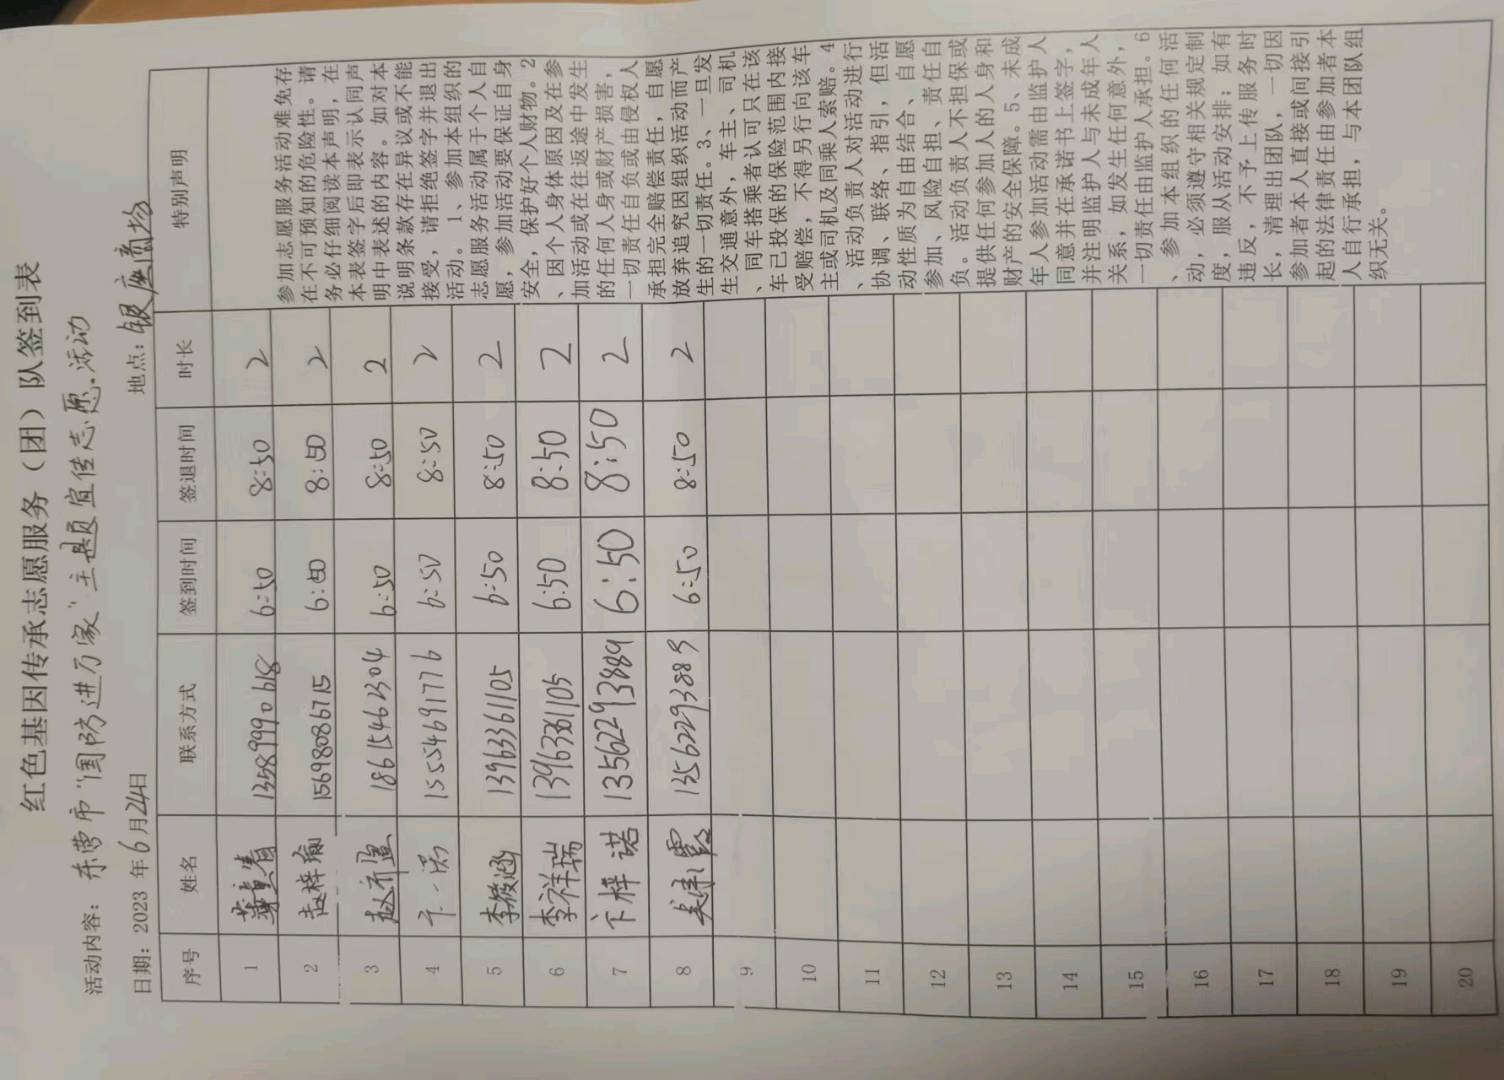 红色基因传承志愿服务（团）队签到表
活动内容：东营市"国防进万家"主题宣传志愿活动
日期：2023 年6月24日 地点：银座商场
序号 姓名 联系方式 签到时间 签退时间 时长 特别声明
1 13589990618 6:50 8:50 2
2 赵梓瑜 15698086715 6:50 8:50 2
3 18615462304 6:50 8:50 2
4 卞一诺 15554691776 6:50 8:50 2
5 李筱涵 13963361105 6:50 8:50 2
6 李祥瑞 13963361105 6:50 8:50 2
7 卞梓诺 13562293889 6:50 8:50 2
8 13562293889 6:50 8:50 2
9
10
11
12
13
14
15
16
17
18
19
20
参加志愿服务活动难免存
在不可预知的危险性。请
务必仔细阅读本声明，在
本表签字后即表示认同声
明中表述的内容。如对本
说明条款存在异议或不能
接受，请拒绝签字并退出
活动。1、参加本组织的
志愿服务活动属于个人自
愿，参加活动要保证自身
安全，保护好个人财物。2
、因个人身体原因及在参
加活动或在往返途中发生
的任何人身或财产损害，
一切责任自负或由侵权人
承担完全赔偿责任，自愿
放弃追究因组织活动而产
生的一切责任。3、一旦发
生交通意外，车主、司机
、同车搭乘者认可只在该
车已投保的保险范围内接
受赔偿，不得另行向该车
主或司机及同乘人索赔。4
、活动负责人对活动进行
协调、联络、指引，但活
动性质为自由结合、自愿
参加、风险自担、责任自
负。活动负责人不担保或
提供任何参加人的人身和
财产的安全保障。5、未成
年人参加活动需由监护人
同意并在承诺书上签字，
并注明监护人与未成年人
关系，如发生任何意外，
一切责任由监护人承担。6
、参加本组织的任何活
动，必须遵守相关规定制
度，服从活动安排；如有
违反，不予上传服务时
长，清理出团队，一切因
参加者本人直接或间接引
起的法律责任由参加者本
人自行承担，与本团队组
织无关。